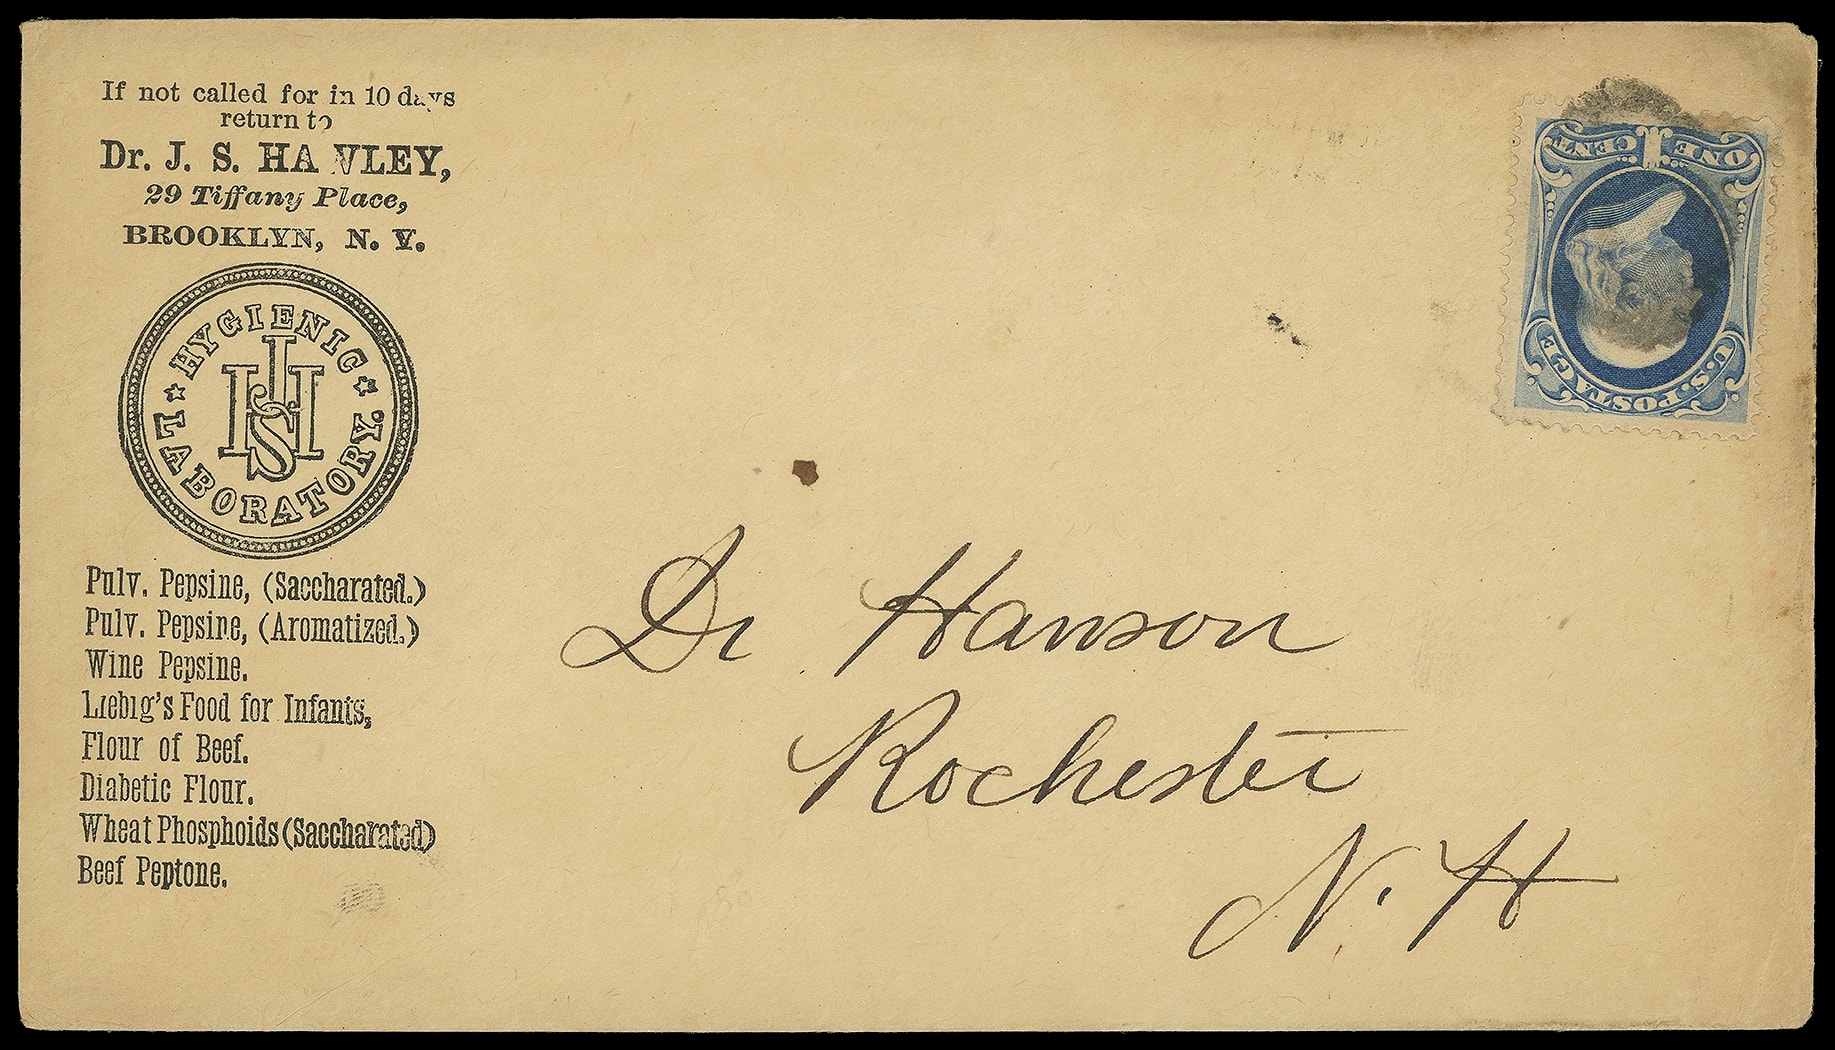 If not called for in 10 days
return to
Dr. J. S. HAWLEY,
29 Tiffany Place,
BROOKLYN, N. Y.
HYGIENIC
JHS
LABORATORY.
Pulv. Pepsine, (Saccharated.)
Pulv. Pepsine, (Aromatized.)
Wine Pepsine.
Liebig's Food for Infants,
Flour of Beef.
Diabetic Flour.
Wheat Phosphoids (Saccharated)
Beef Peptone.
U.S. POSTAGE
ONE 1 CENT
Dr Hanson
Rochester
N. H